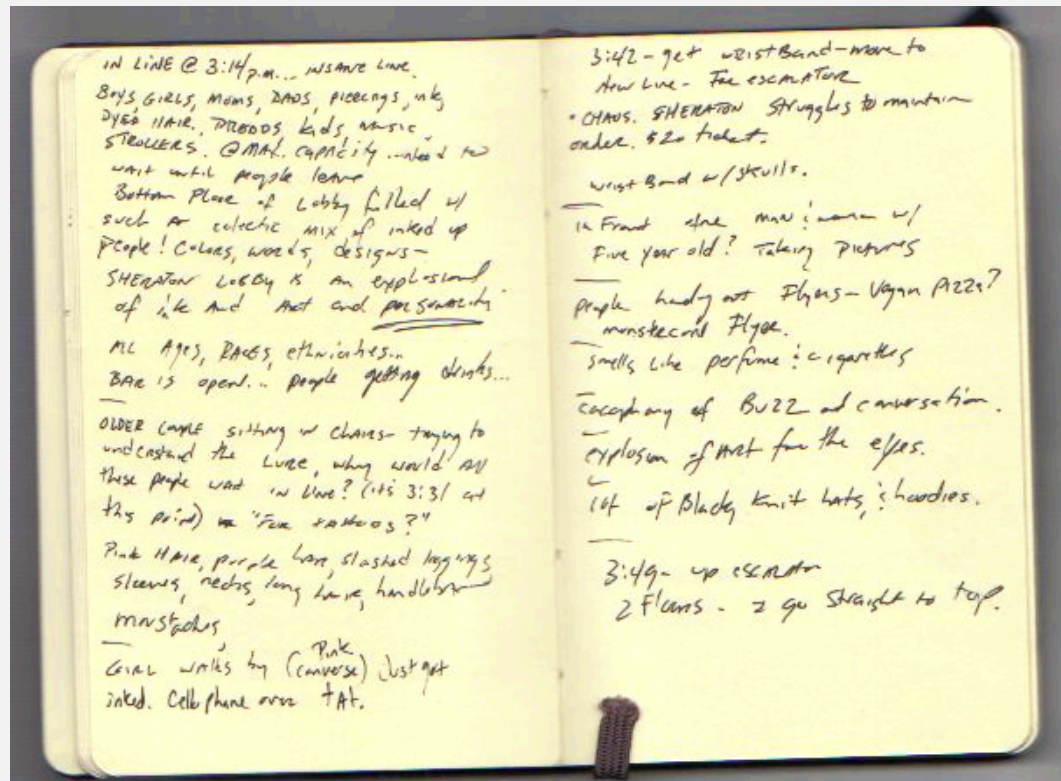 IN LINE @ 3:14 p.m... INSANE LINE.
BOYS, GIRLS, MOMS, DADS, PIERCINGS, ink,
DYED HAIR, DREDDS, kids, music,
STROLLERS. @ MAX. CAPACITY... need to
wait until people leave
Bottom Floor of Lobby filled w/
such an eclectic mix of inked up
people! Colors, words, designs-
SHERATON LOBBY is an explosion
of ink And Art and personality.
ALL Ages, RACES, ethnicities...
BAR is open... people getting drinks...
OLDER COUPLE sitting in chairs- trying to
understand the LURE, why would all
these people wait in line? (it's 3:31 at
this point) "For tattoos?"
Pink HAIR, purple hair, slashed leggings
sleeves, necks, long hair, handlebar
mustaches,
GIRL walks by (Pink converse) Just got
inked. Cellophane over tAt.
3:42- get wristBand- move to
New Line- For escalator
• CHAOS. SHERATON struggles to maintain
order. $20 ticket.
wristBand w/ skulls.
in Front man & woman w/
Five year old? Taking Pictures
people handing out Flyers- Vegan Pizza?
Flyer.
smells like perfume & cigarettes
Cacophony of BUZZ and conversation.
explosion of ART for the eyes.
lot of Black knit hats, & hoodies.
3:49- up escalator
2 Floors - I go straight to top.